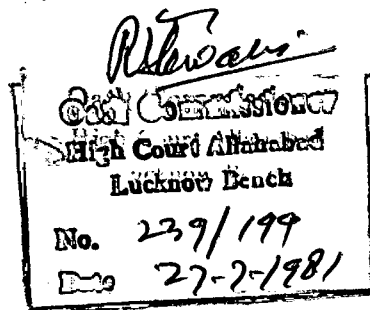 Oath Commissioner
High Court Allahabad
Lucknow Bench
No. 239/199
Date 27-7-1981